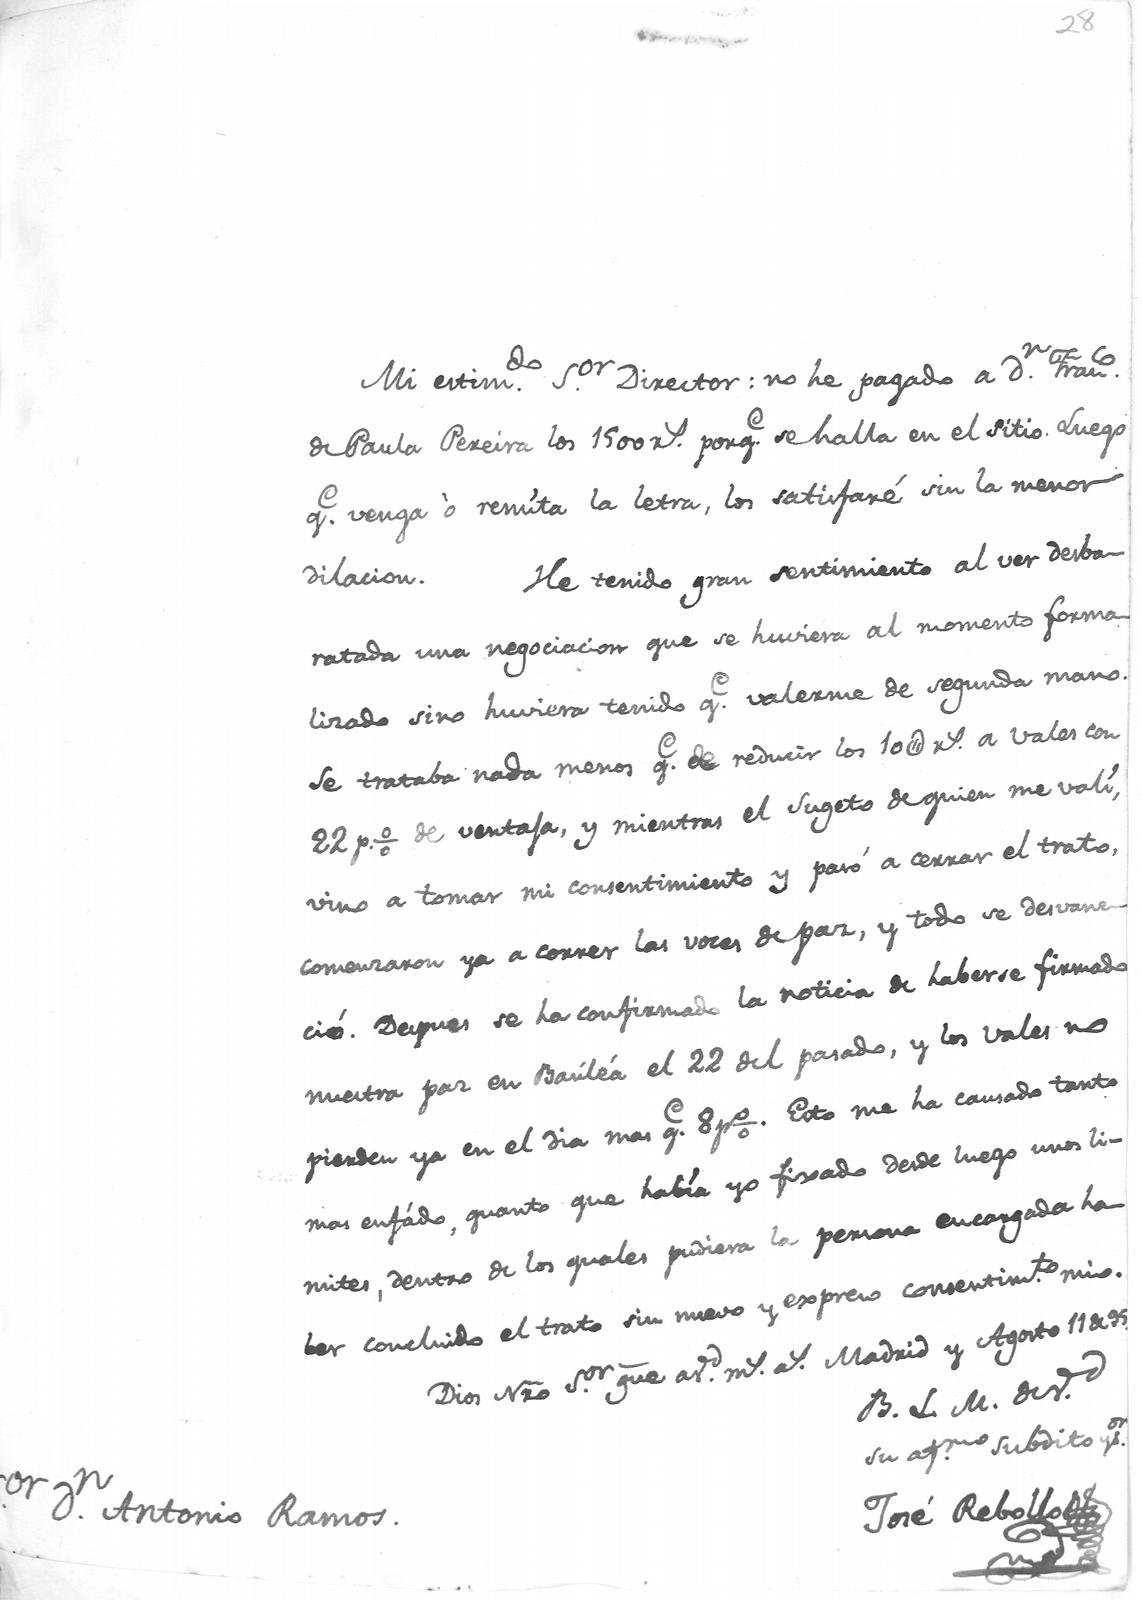 28
Mi estim.do S.or Director: no he pagado a d.n Fran.co
de Paula Pereira los 1500 r.s porq.e se halla en el sitio. Luego
q.e venga ò remíta la letra, los satisfaré sin la menor
dilacion. He tenido gran sentimiento al ver desba-
ratada una negociacion que se huviera al momento forma-
lizado sino huviera tenido q.e valerme de segunda mano.
Se trataba nada menos q.e de reducir los 10@ r.s a vales con
22 p.% de ventaja, y mientras el sugeto de quien me valí,
vino a tomar mi consentimiento y pasó a cerrar el trato,
comenzaron ya a correr las voces de paz, y todo se desvane-
ció. Depues se ha confirmado la noticia de haberse firmado
nuestra paz en Basiléa el 22 del pasado, y los vales no
pierden ya en el dia mas q.e 8 p%. Esto me ha causado tanto
mas enfádo, quanto que había yo fixado desde luego unos li-
mites, dentro de los quales pudiera la persona encargada ha-
ber concluido el trato sin nuevo y expreso consentim.to mio.
Dios Nro S.or gue a v.d m.s a.s Madrid y Agosto 11 de 95
B. L. M. de v.d
su af.mo subdito y s.or
José Rebollo
or d.n Antonio Ramos.